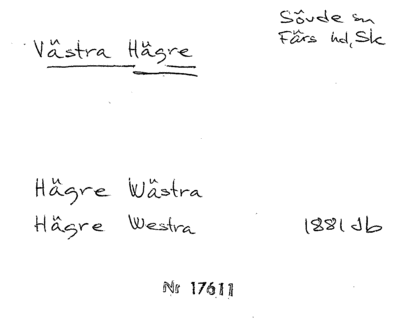 Västra Hägre
Sövde sn
Färs hd, Sk
Hägre Wästra
Hägre Westra 1881 db
Nr 17611